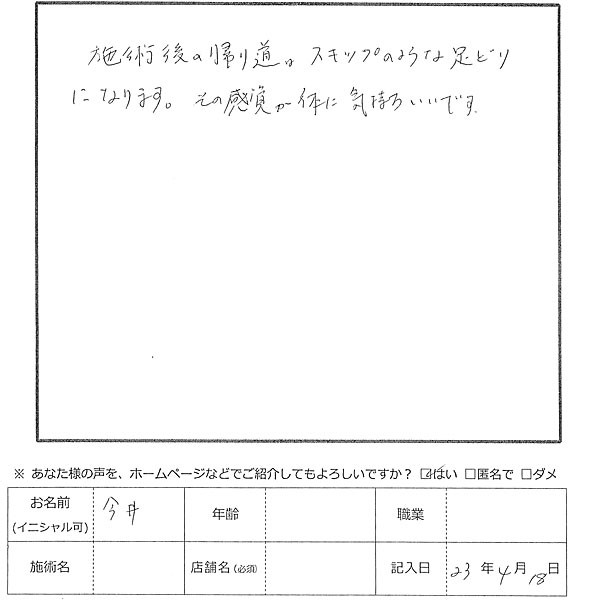 施術後の帰り道は スキップのような足どり
になります。その感覚が体に気持ちいいです。
※ あなた様の声を、ホームページなどでご紹介してもよろしいですか？ ☑はい □匿名で □ダメ
お名前 (イニシャル可) 今井 年齢 職業
施術名 店舗名（必須） 記入日 23 年 4 月 18 日